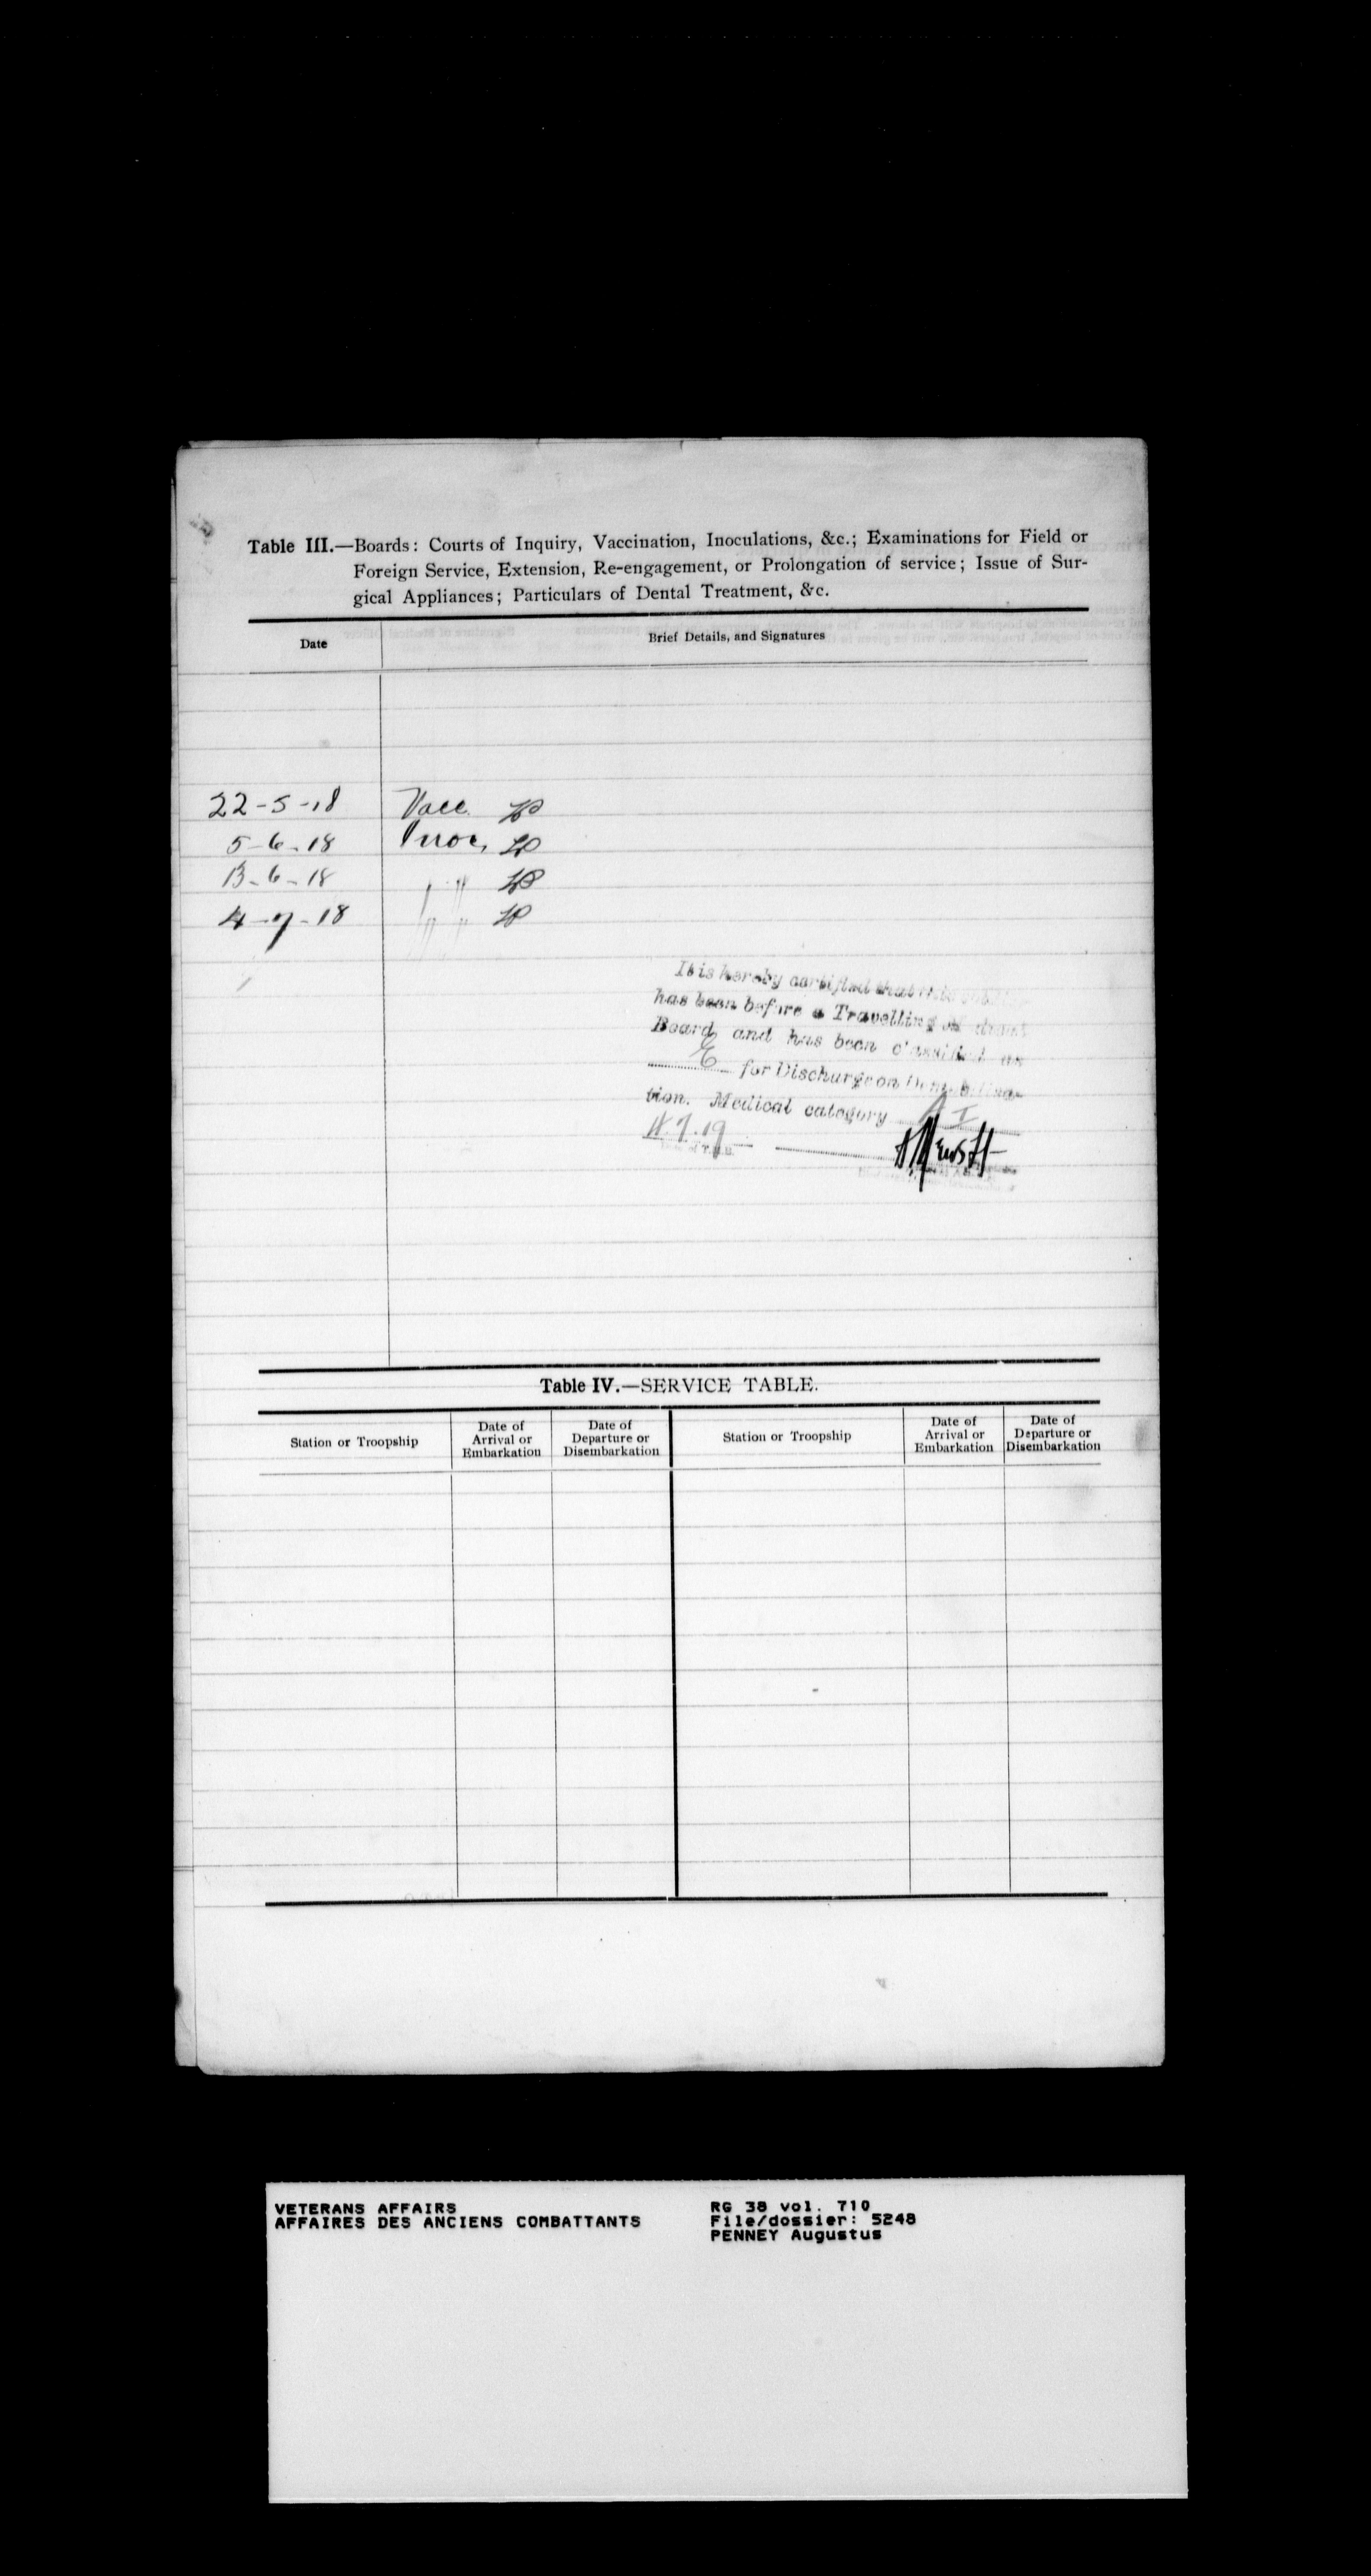 Table III.—Boards: Courts of Inquiry, Vaccination, Inoculations, &c.; Examinations for Field or
Foreign Service, Extension, Re-engagement, or Prolongation of service; Issue of Sur-
gical Appliances; Particulars of Dental Treatment, &c.
Date
Brief Details, and Signatures
22-5-18 Vacc
5-6-18 Inoc,
13-6-18 " "
4-7-18 " "
It is hereby certified that this
has been before a Travelling Medical
Board, and has been classified as
E for Discharge on Demobilisa-
tion. Medical category A I
7.19
Table IV.—SERVICE TABLE.
Station or Troopship
Date of Arrival or Embarkation
Date of Departure or Disembarkation
Station or Troopship
Date of Arrival or Embarkation
Date of Departure or Disembarkation
VETERANS AFFAIRS
AFFAIRES DES ANCIENS COMBATTANTS
RG 38 vol. 710
File/dossier: 5248
PENNEY Augustus